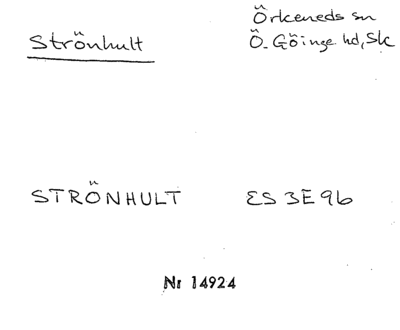 Strönhult
Örkeneds sn
Ö. Göinge hd, Sk
STRÖNHULT ES 3E9b
Nr 14924